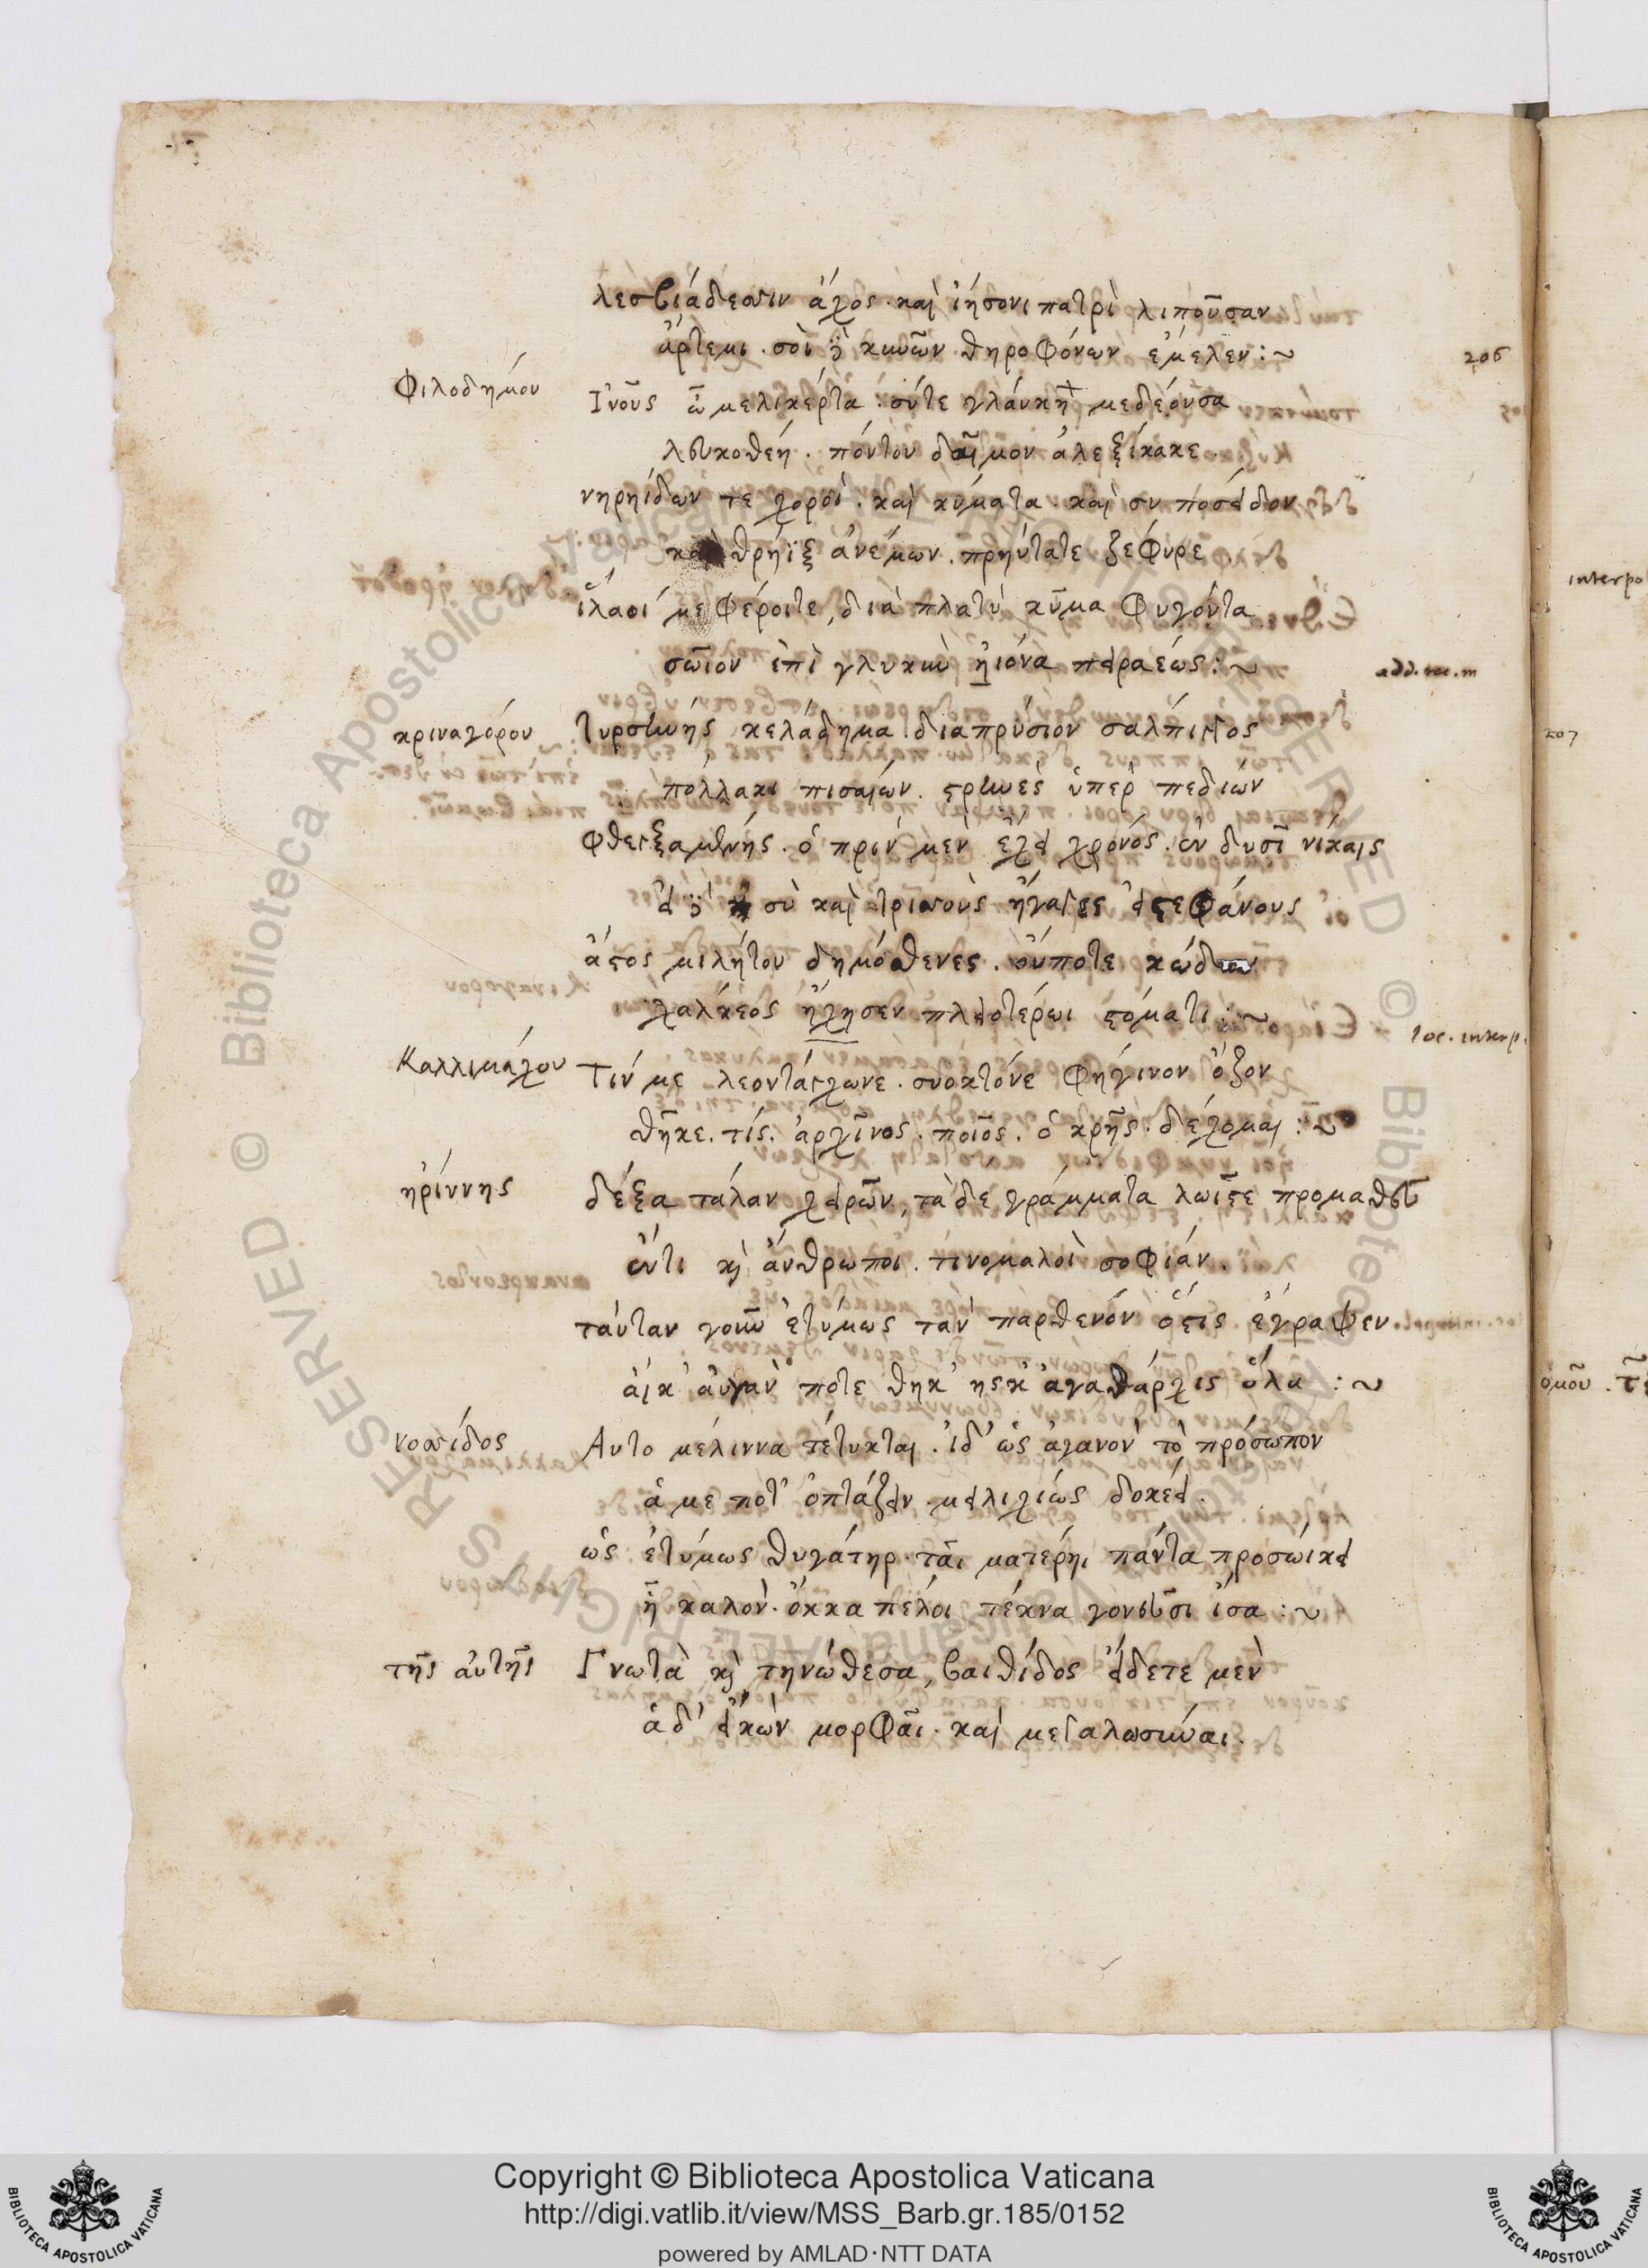 λεσβιάδεσσιν ἄχος. καὶ ἰήσονι πατρὶ λιποῦσαν
ἄρτεμι. σοὶ δὲ κυνῶν θηροφόνων ἔμελεν :~
206
Φιλοδήμου Ἰνοῦς ὦ μελικέρτα. σύτε γλάυκὴ μεδέουσα
λευκοθέη. πόντου δαῖμον ἀλεξίκακε.
νηρηίδων τε χοροὶ. καὶ κύματα. καὶ συ πόσειδον
καὶ θρήϊξ ἀνέμων. πρηύτατε ζέφυρε
ἵλαοί με φέροιτε, διὰ πλατὺ κῦμα φυγόντα
σῶιον ἐπὶ γλυκὺν ἠϊόνα πειραέως :~
κριναγόρου Τυρσηνῆς κελάδημα διαπρύσιον σάλπιγγος
πολλάκι πισαίων. στρηνὲς ὑπὲρ πεδίων
φθεγξαμένης. ὁ πρὶν μὲν ἔχει χρόνος. ἐν δυσὶ νίκαις
εἰ δὲ σὺ καὶ τρισσοὺς ἤγαγες εἰστεφάνους
ἄστος μιλήτου δημόσθενες. οὔποτε κώδων
χάλκεος ἤχησεν πλειοτέρωι στόματι :~
Καλλιμάχου Τίν με λεοντάγχωνε. συοκτόνε φήγινον ὄζον
θῆκε. τίς. ἀρχῖνος. ποῖος. ὁ κρῆς. δέχομαι :~
ἠρίννης δέξα τάλαν χειρῶν, τὰ δε γράμματα λωῖστε προμαθεῦ
ἐντὶ καὶ ἄνθρωποι. τινομαλοὶ σοφίαν.
ταύταν γοῦν ἐτύμως τὰν παρθένον ὅστις ἔγραψεν
αἰκ' αὐγὰν ποτε θηκ' ησκ' ἀγαθάρχις ὅλα :~
νοσσίδος Αυτο μέλιννα τέτυκται. ἰδ' ὡς ἀγανὸν τὸ πρόσωπον
ἁ με ποτ' ὀπτάζειν. μειλιχίως δοκεῖ.
ὡς ἐτύμως θυγάτηρ. τᾶι ματέρηι πάντα προσώικει
ἦ καλὸν. ὅκκα πέλοι τέκνα γονεῦσι ἴσα :~
τῆς αὐτῆς Γνωτὰ καὶ τηνώθεσα, σαιθίδος εἴδετε μὲν
ἁδ' εἰκὼν μορφᾶι. καὶ μεγαλωσύναι.
interpo
add. rec. m
207
loc. interp.
ὁμοῦ.
Copyright © Biblioteca Apostolica Vaticana
http://digi.vatlib.it/view/MSS_Barb.gr.185/0152
powered by AMLAD·NTT DATA
BIBLIOTECA APOSTOLICA VATICANA
BIBLIOTECA APOSTOLICA VATICANA